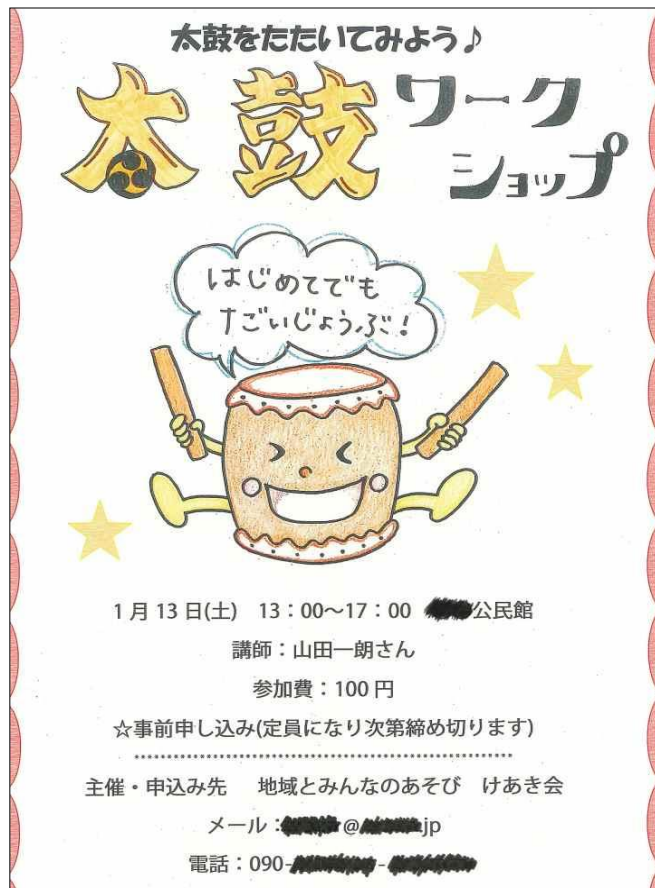 太鼓をたたいてみよう♪
太鼓ワーク
ショップ
はじめてでも
すごいじょうぶ!
1月13日(土) 13:00~17:00 公民館
講師:山田一朗さん
参加費:100円
☆事前申し込み(定員になり次第締め切ります)
主催・申込み先 地域とみんなのあそび けあき会
メール: @ jp
電話:090- -